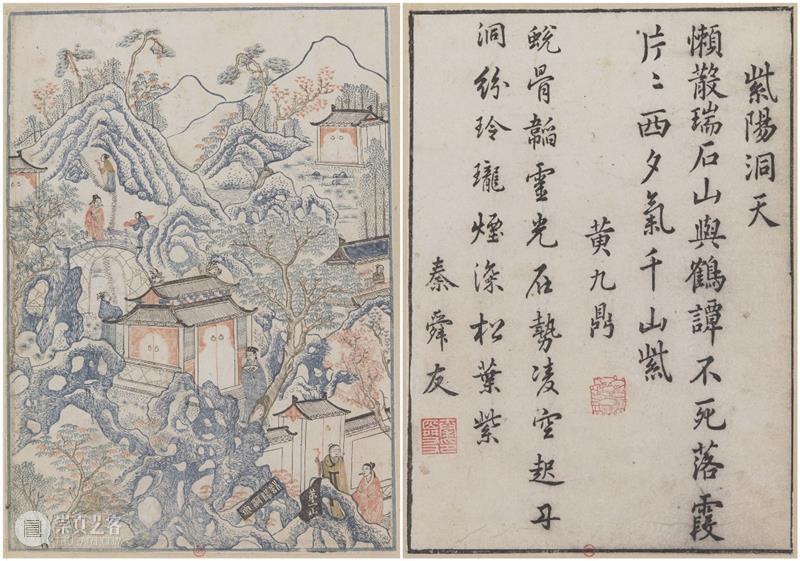 紫陽洞天
懶散瑞石山與鶴譚不死落霞
片〻西夕氣千山紫
黄九鼎
蛻骨韜靈光石勢凌空起丹
洞紛玲瓏煙深松葉紫
秦舜友
崇真艺客